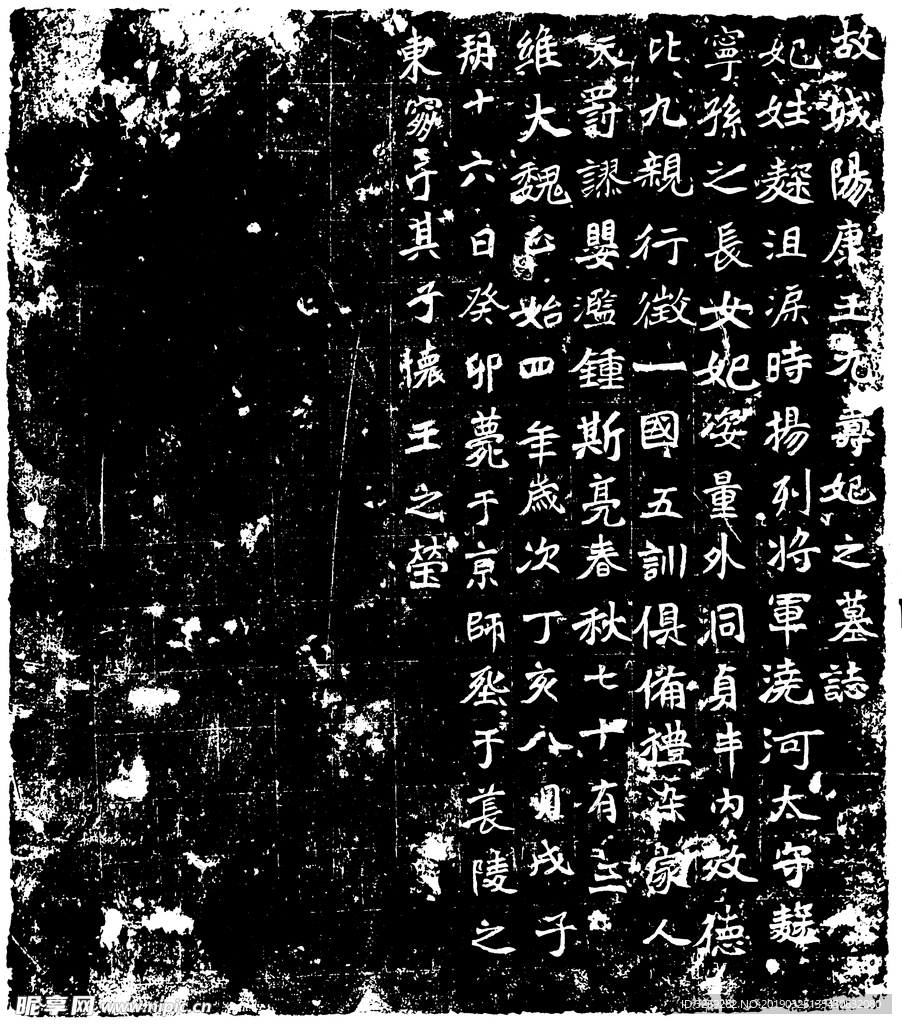 故城陽康王元壽妃之墓誌
妃姓麹沮渠時揚列將軍澆河太守麹
寧孫之長女妃姿量外洞貞丰內效德
比九親行徵一國五訓俱備禮染家人
天爵謬嬰濫鍾斯亮春秋七十有三
維大魏正始四年歲次丁亥八月戊子
朔十六日癸卯薨于京師丞于萇陵之
東窮于其子懷王之塋
昵享网 www.nipic.cn